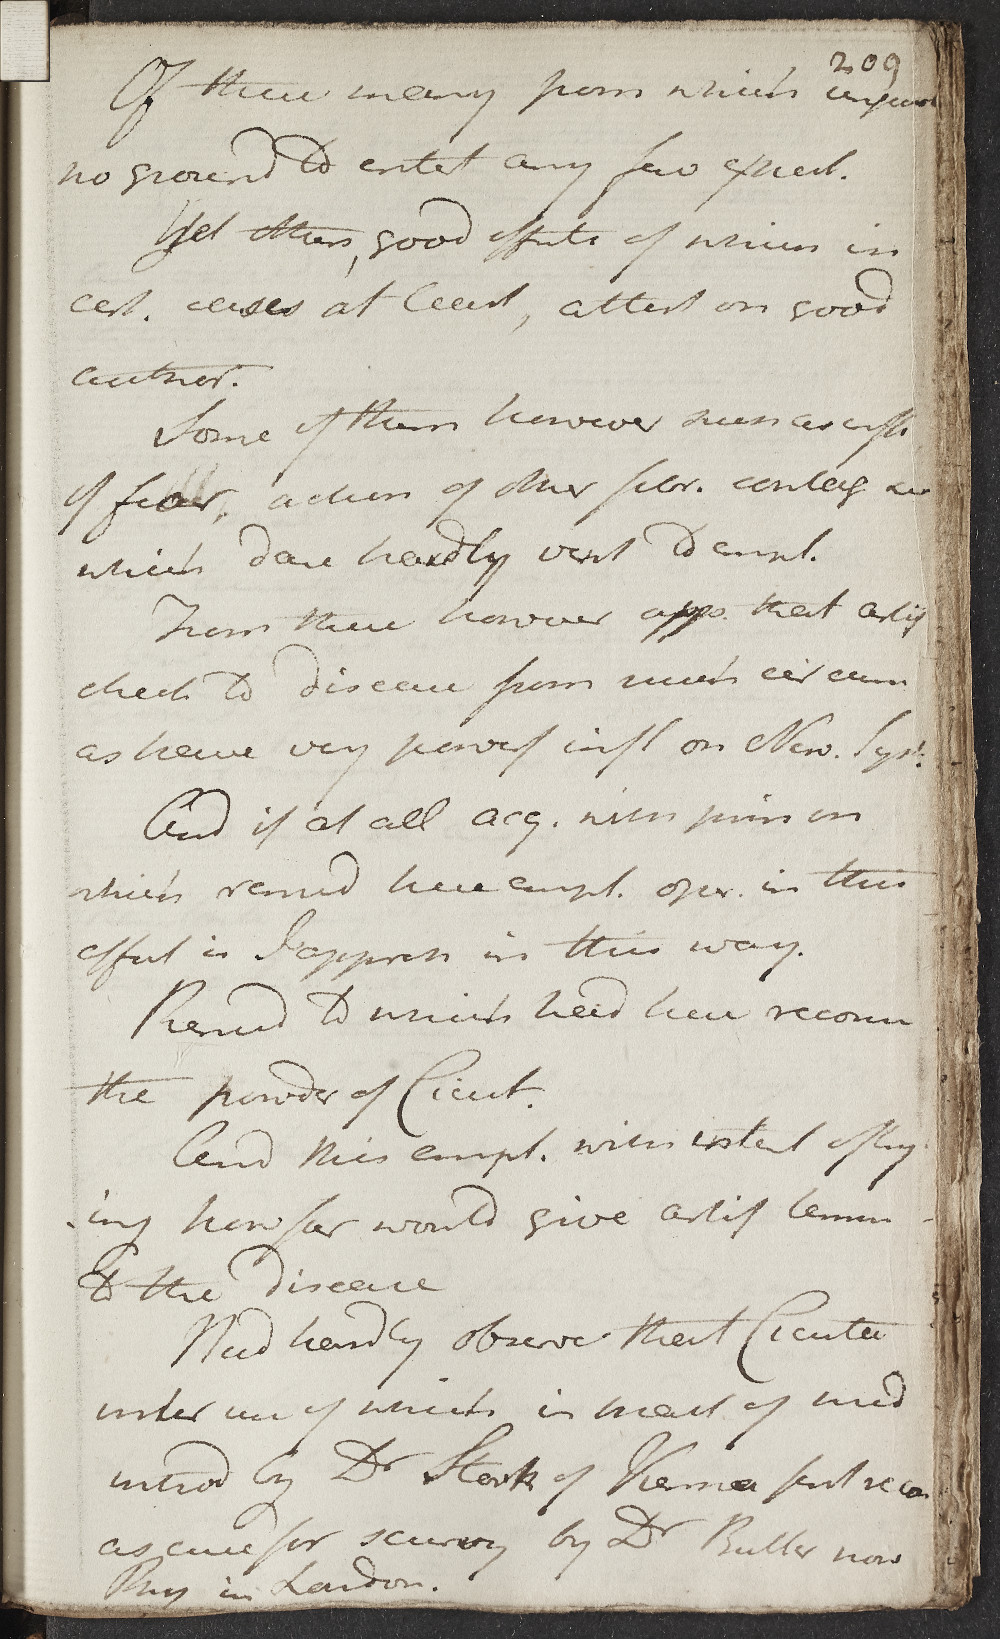 209
Of these many from which
no ground to entert any fav effect.
Yet others, good effects of which in
cert. cases at least, attest on good
author.
Some of them however such as
of fear, action of other febr. contag
which dare hardly vent to empl.
From these however app. that artif
check to disease from such circum
as have very powerf infl on Nerv. Syst.
And if at all acq. with prin on
which remed have empl. oper. in this
effect is I appreh in this way.
Remed to which had here recom
the powder of Cicut.
And this empl. with intent of try
ing how far would give artif
to the disease
Need hardly observe that Cicuta
under use of which in mat of med
introd by Dr Stork of Vienna first recom
as cure for by Dr Butter now
Phy in London.